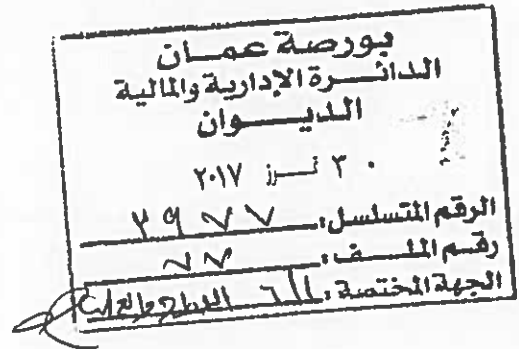 بورصة عمان
الدائرة الإدارية والمالية
الديوان
٣٠ تموز ٢٠١٧
الرقم المتسلسل: ٣٩٧٧
رقم الملف: ٧٧
الجهة المختصة: